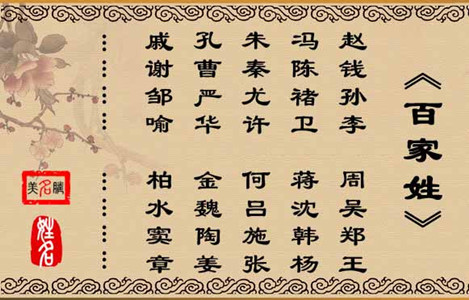 《百家姓》
赵钱孙李 周吴郑王
冯陈褚卫 蒋沈韩杨
朱秦尤许 何吕施张
孔曹严华 金魏陶姜
戚谢邹喻 柏水窦章
………… …………
美名腾
姓名